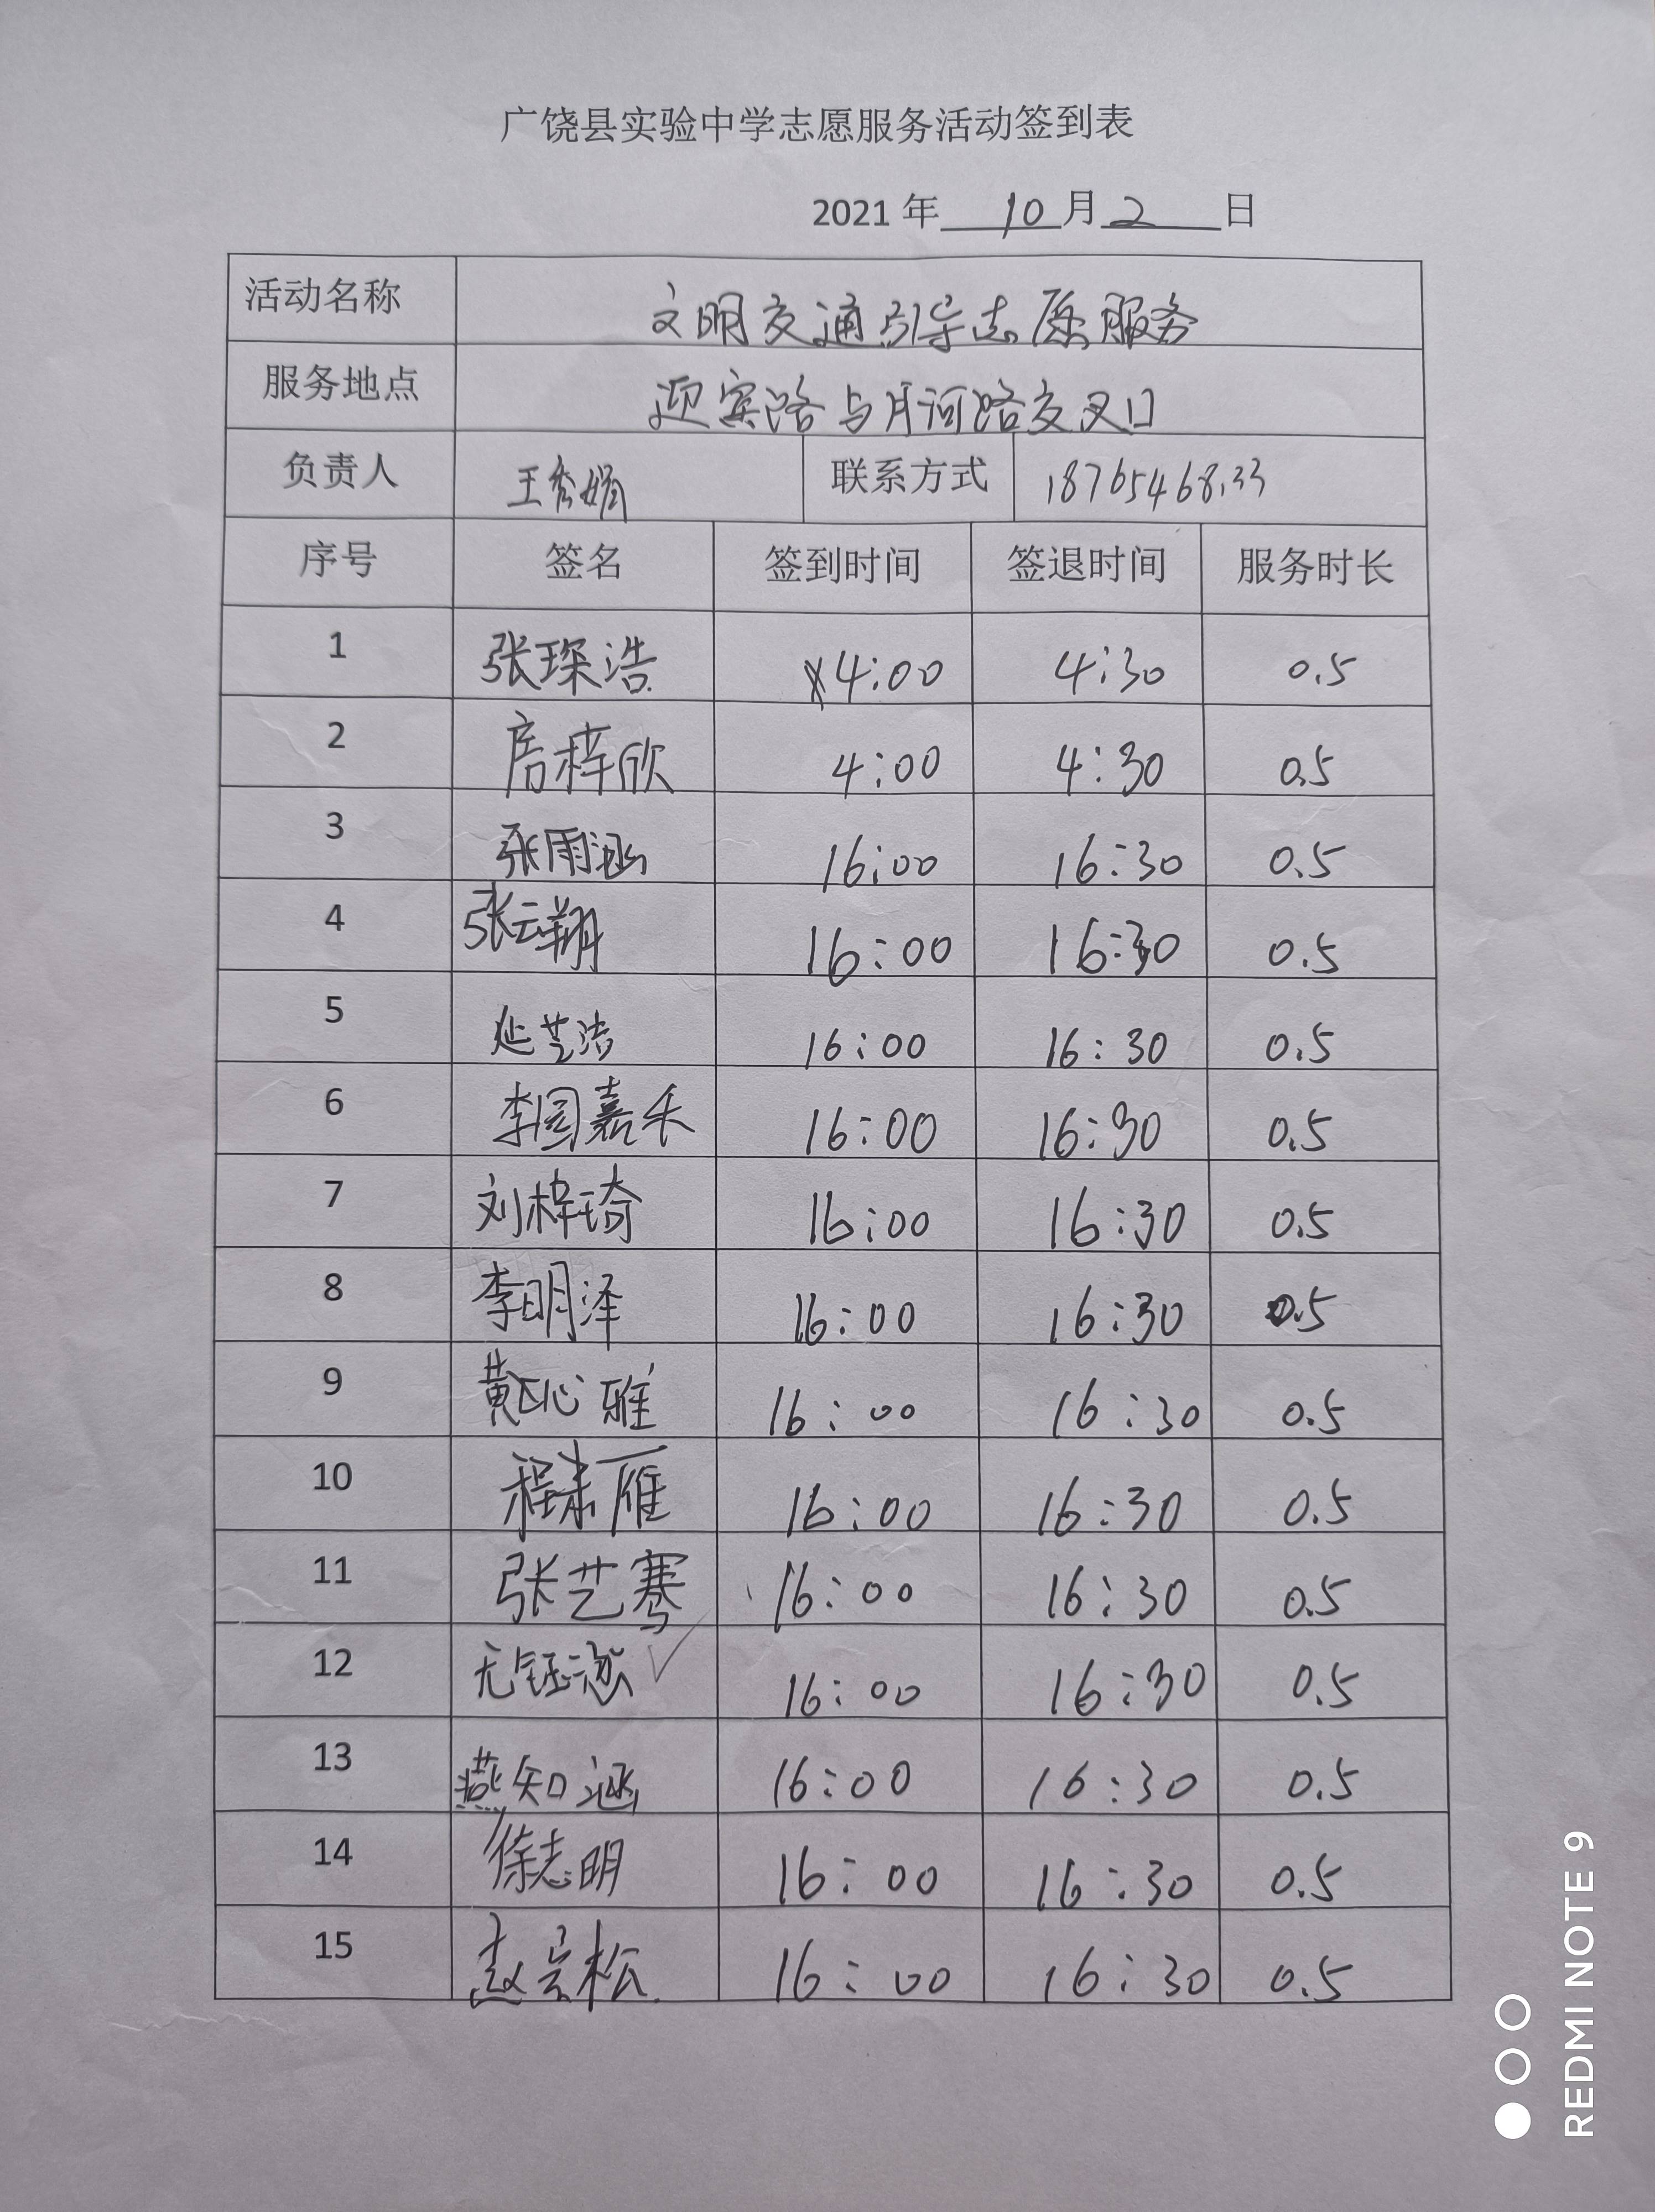 广饶县实验中学志愿服务活动签到表
2021 年 10 月 2 日
活动名称 文明交通引导志愿服务
服务地点 迎宾路与月河路交叉口
负责人 王秀娟 联系方式
序号 签名 签到时间 签退时间 服务时长
1 张琛浩 4:00 4:30 0.5
2 房梓欣 4:00 4:30 0.5
3 张雨涵 16:00 16:30 0.5
4 张云翔 16:00 16:30 0.5
5 延艺洁 16:00 16:30 0.5
6 李国嘉禾 16:00 16:30 0.5
7 刘梓琦 16:00 16:30 0.5
8 李明泽 16:00 16:30 0.5
9 黄心雅 16:00 16:30 0.5
10 程来雁 16:00 16:30 0.5
11 张艺骞 16:00 16:30 0.5
12 16:00 16:30 0.5
13 燕知涵 16:00 16:30 0.5
14 徐志明 16:00 16:30 0.5
15 赵宗松 16:00 16:30 0.5
REDMI NOTE 9